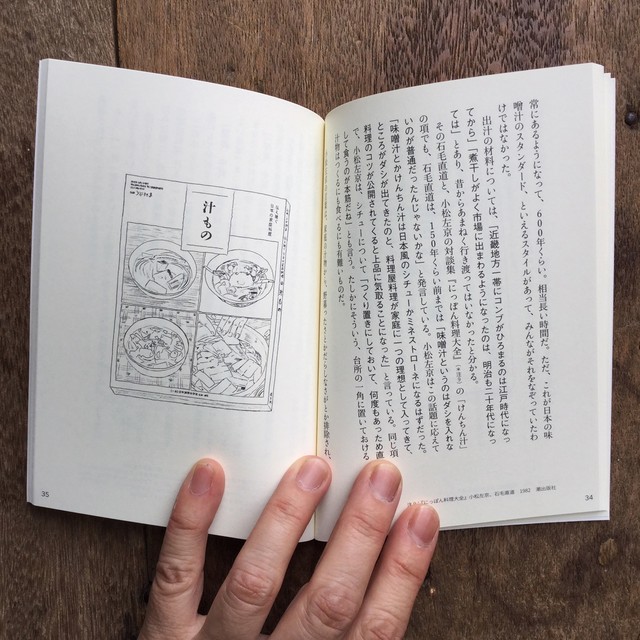 常にあるようになって、600年くらい。相当長い時間だ。ただ、これが日本の味
噌汁のスタンダード、といえるスタイルがあって、みんながそれをなぞっていたわ
けではなかった。
出汁の材料については、「近畿地方一帯にコンブがひろまるのは江戸時代になっ
てから」「煮干しがよく市場に出まわるようになったのは、明治も二十年代になっ
ては」とあり、昔からあまねく行き渡ってはいなかったと分かる。
その石毛直道と、小松左京の対談集『にっぽん料理大全』の「けんちん汁」
の項でも、石毛直道は、150年くらい前までは「味噌汁というのはダシを入れな
いのが普通だったんじゃないかな」と発言している。小松左京はこの話題に応えて
「味噌汁とかけんちん汁は日本風のシチューかミネストローネになるはずだった。
ところがダシが出てきたのと、料理屋料理が家庭に一つの理想として入ってきて、
料理のコツが公開されてくると上品に気取ることになった」と言っている。同じ項
で、小松左京は、シチューについて「つくり置きにしておいて、何度もあっため直
して食うのが本筋だね」とも言う。たしかにそういう、台所の一角に置いておける
汁物は、つくるにも食べるにも有難いものだ。
『にっぽん料理大全』小松左京、石毛直道 1982 潮出版社
34
汁もの
35